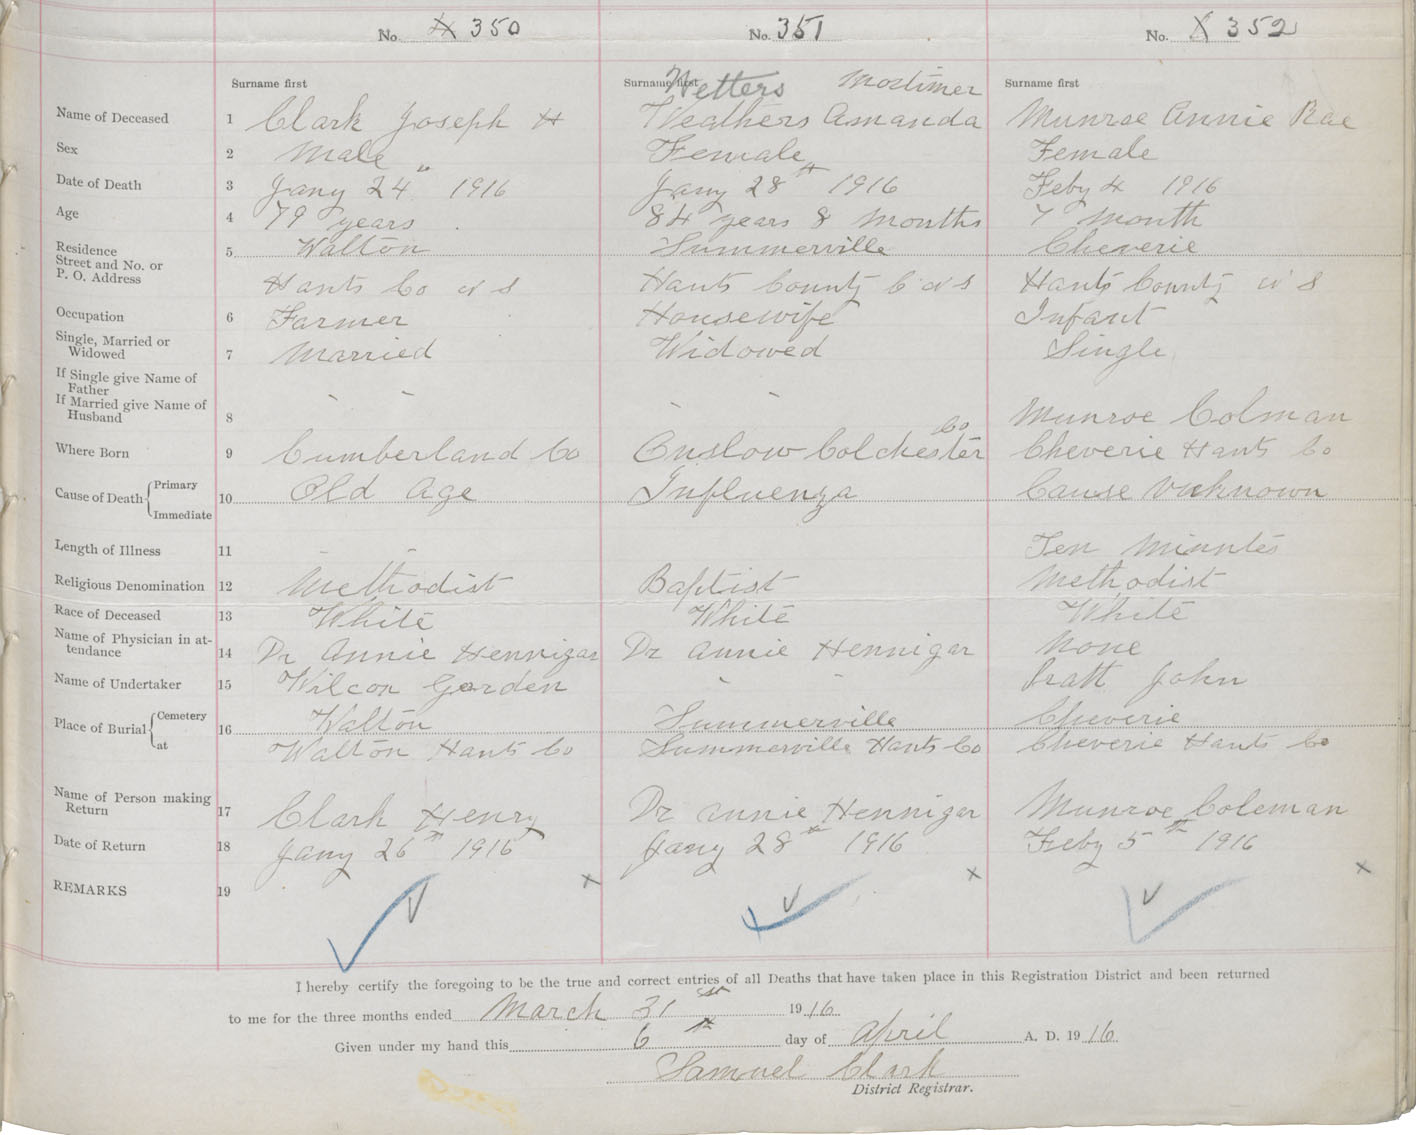 No. 350 No. 351 No. 352
Surname first Surname first Wetters Mortimer Surname first
Name of Deceased 1 Clark Joseph H Weathers Amanda Munroe Annie Rae
Sex 2 Male Female Female
Date of Death 3 Jany 24" 1916 Jany 28th 1916 Feby 4 1916
Age 4 79 years 84 years 8 Months 7 Month
Residence 5 Walton Summerville Cheverie
Street and No. or
P. O. Address Hants Co N S Hants County C N S Hants County N S
Occupation 6 Farmer Housewife Infant
Single, Married or
Widowed 7 Married Widowed Single
If Single give Name of
Father
If Married give Name of
Husband 8 " " " " Munroe Colman
Where Born 9 Cumberland Co Onslow Colchester Co Cheverie Hants Co
Cause of Death Primary
Immediate 10 Old Age Influenza Cause Unknown
Length of Illness 11 " " Ten Minutes
Religious Denomination 12 Methodist Baptist Methodist
Race of Deceased 13 White White White
Name of Physician in at-
tendance 14 Dr Annie Hennigar Dr Annie Hennigar None
Name of Undertaker 15 Wilcox Gorden " " Pratt John
Place of Burial Cemetery 16 Walton Summerville Cheverie
at Walton Hants Co Summerville Hants Co Cheverie Hants Co
Name of Person making
Return 17 Clark Henry Dr Annie Hennigar Munroe Coleman
Date of Return 18 Jany 26th 1916 Jany 28th 1916 Feby 5th 1916
REMARKS 19 x x x
I hereby certify the foregoing to be the true and correct entries of all Deaths that have taken place in this Registration District and been returned
to me for the three months ended March 31st 1916
Given under my hand this 6th day of April A. D. 1916
Samuel Clark
District Registrar.